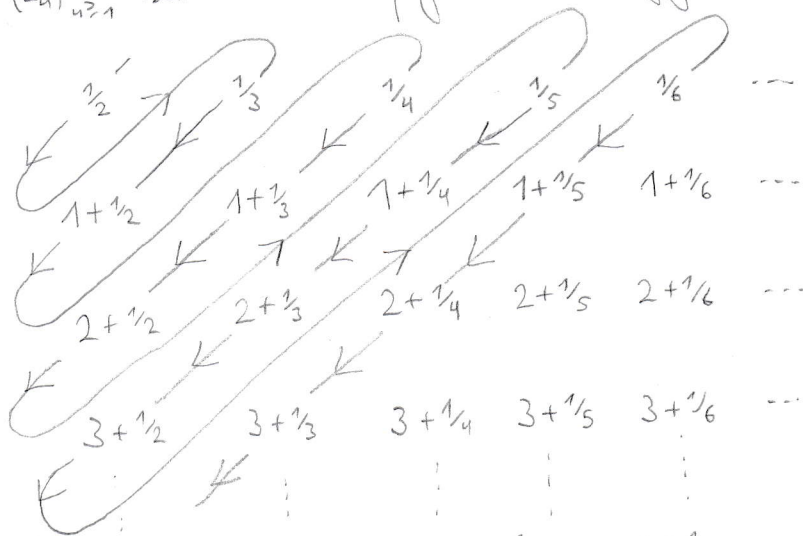 1/2 1/3 1/4 1/5 1/6 ---
1+1/2 1+1/3 1+1/4 1+1/5 1+1/6 ---
2+1/2 2+1/3 2+1/4 2+1/5 2+1/6 ---
3+1/2 3+1/3 3+1/4 3+1/5 3+1/6 ---